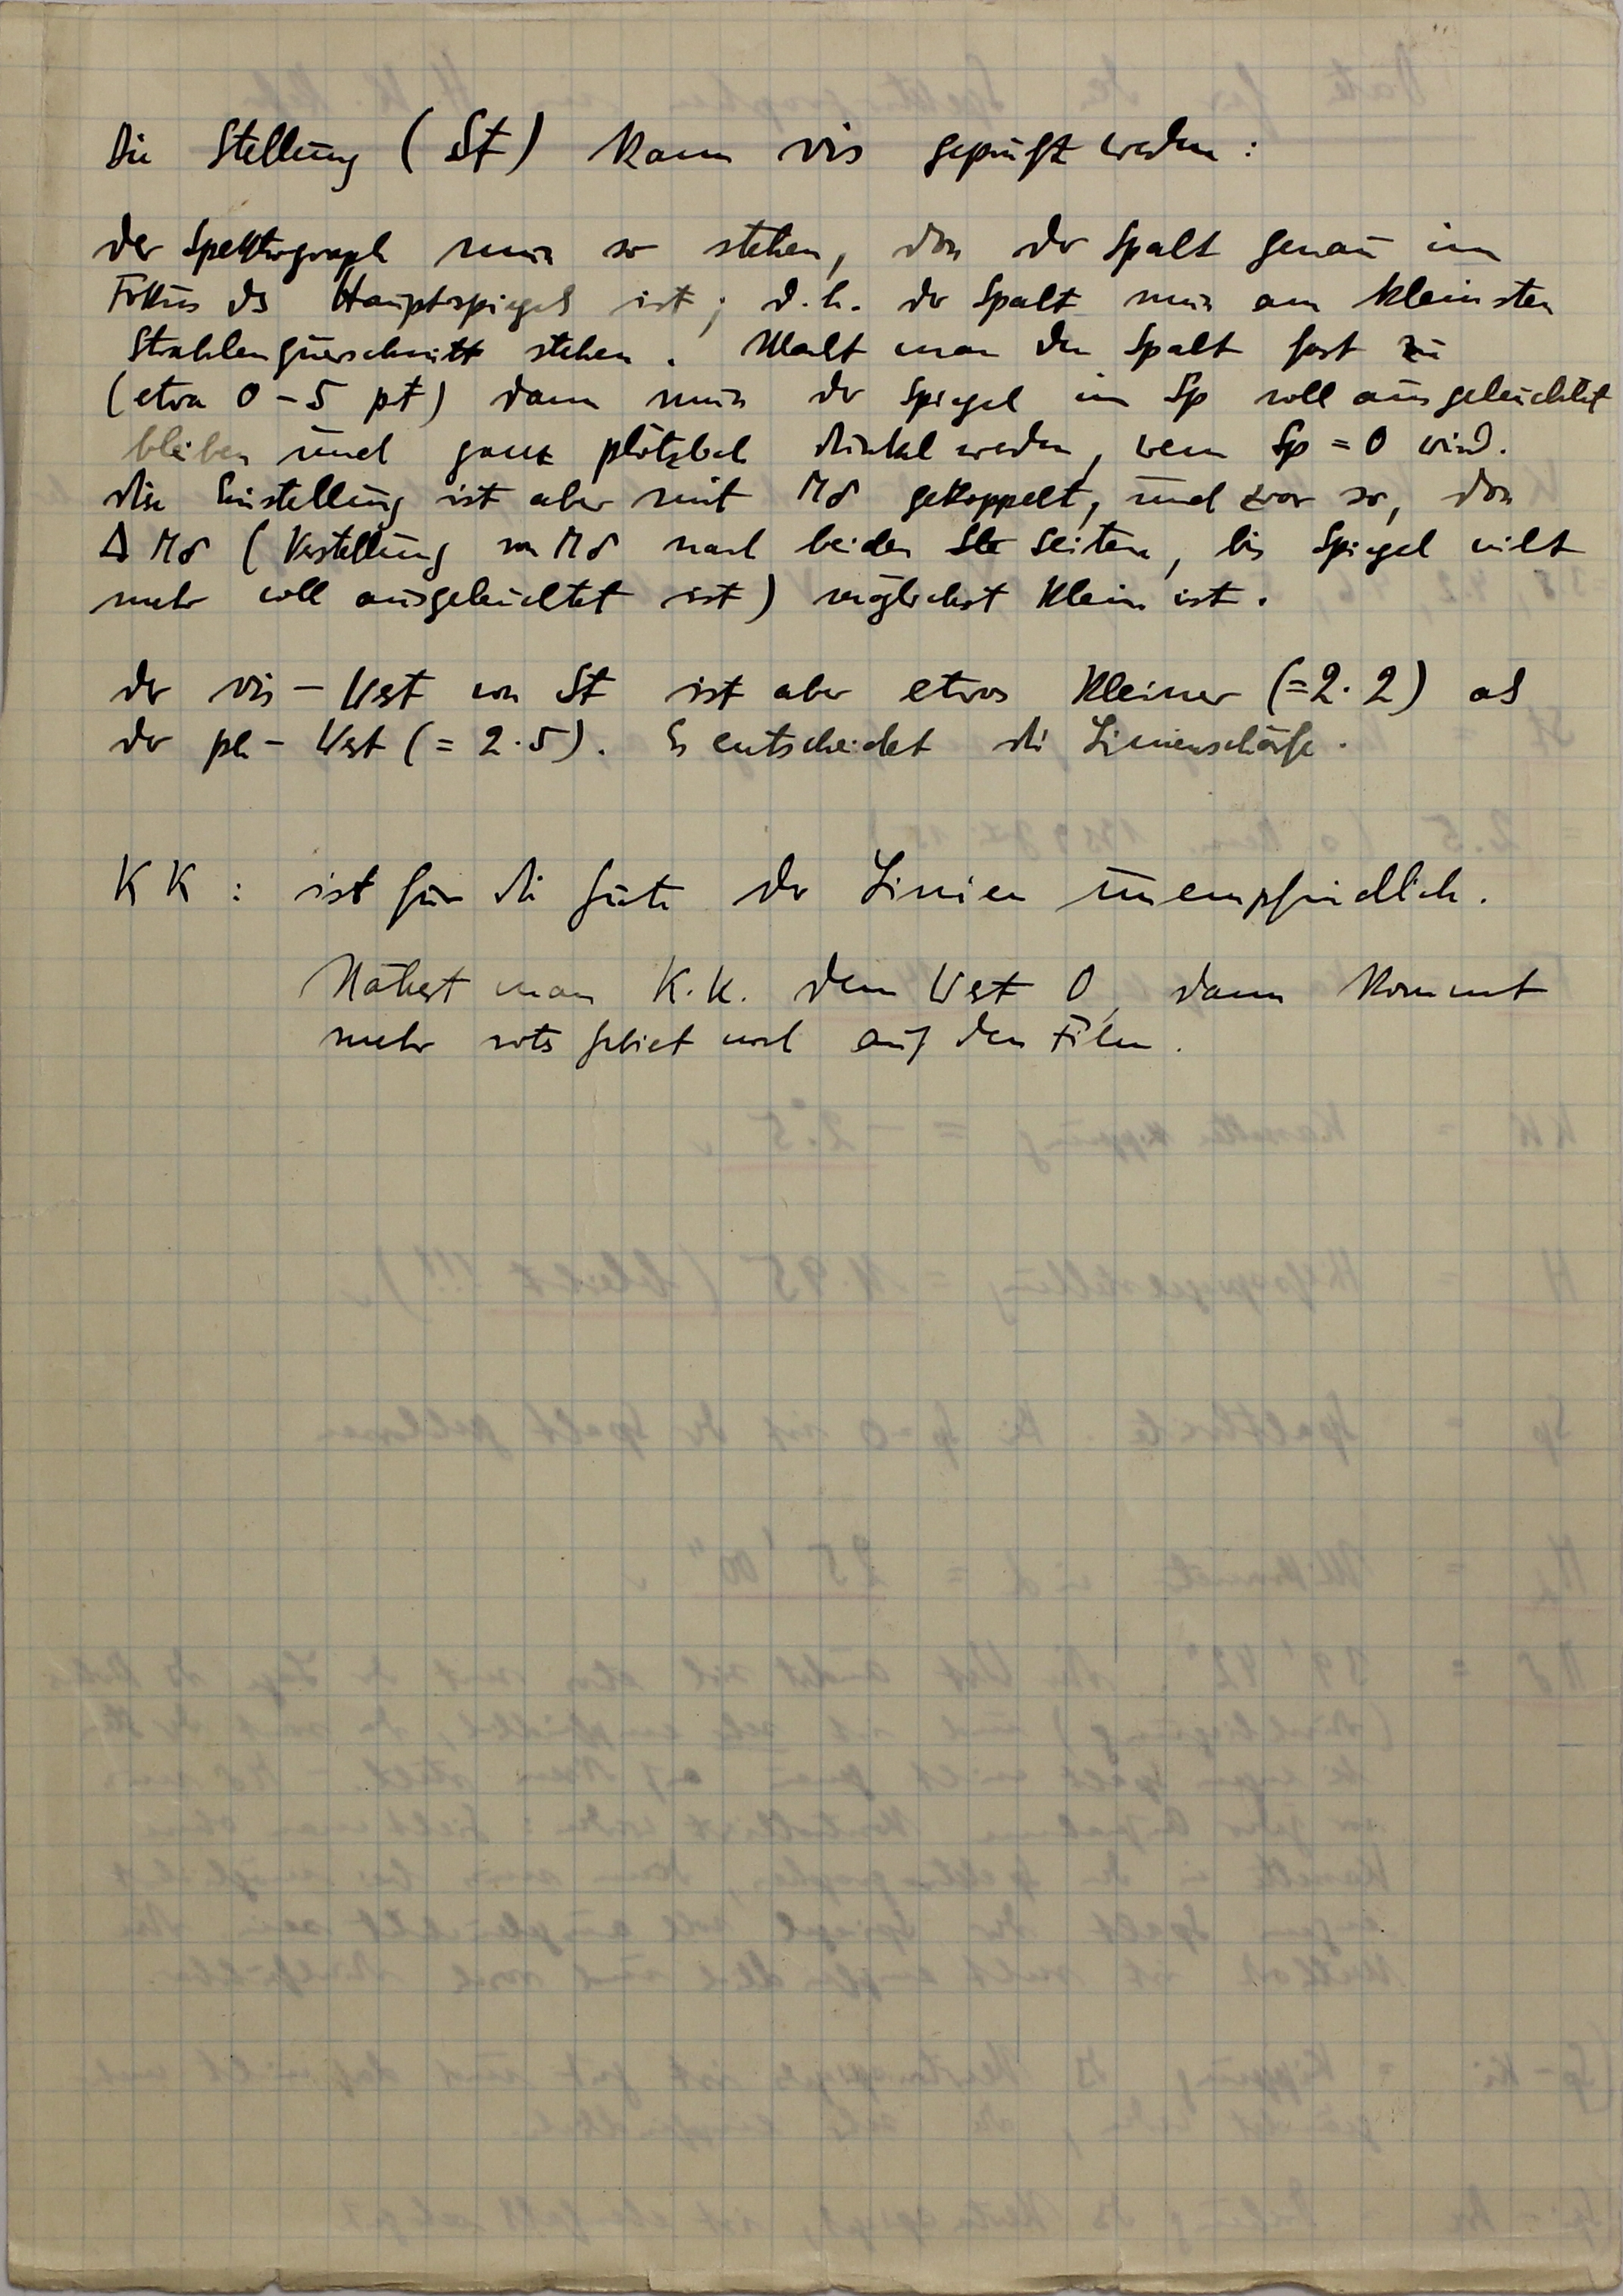 Die Stellung (St) kann vis geprüft werden:
der Spektrograph muss so stehen, dass der Spalt genau im
Fokus des Hauptspiegels ist; d.h. der Spalt muss am kleinsten
Strahlenquerschnitt stehen. Macht man den Spalt fast zu
(etwa 0 - 5 pt) dann muss der Spiegel im Sp voll ausgeleuchtet
bleiben und ganz plötzlich dunkel werden, wenn Sp = 0 wird.
diese Einstellung ist aber mit Mδ gekoppelt, und zwar so, dass
Δ Mδ (Verstellung von Mδ nach beiden Seiten, bis Spiegel nicht
mehr voll ausgeleuchtet ist) möglichst klein ist.
der vis - Wert von St ist aber etwas kleiner (=2.2) als
der ph - Wert (= 2.5). Es entscheidet die Linienschärfe.
KK: ist für die Güte der Linien unempfindlich.
Nähert man K.K. dem Wert 0, dann kommt
mehr rotes Gebiet noch auf den Film.